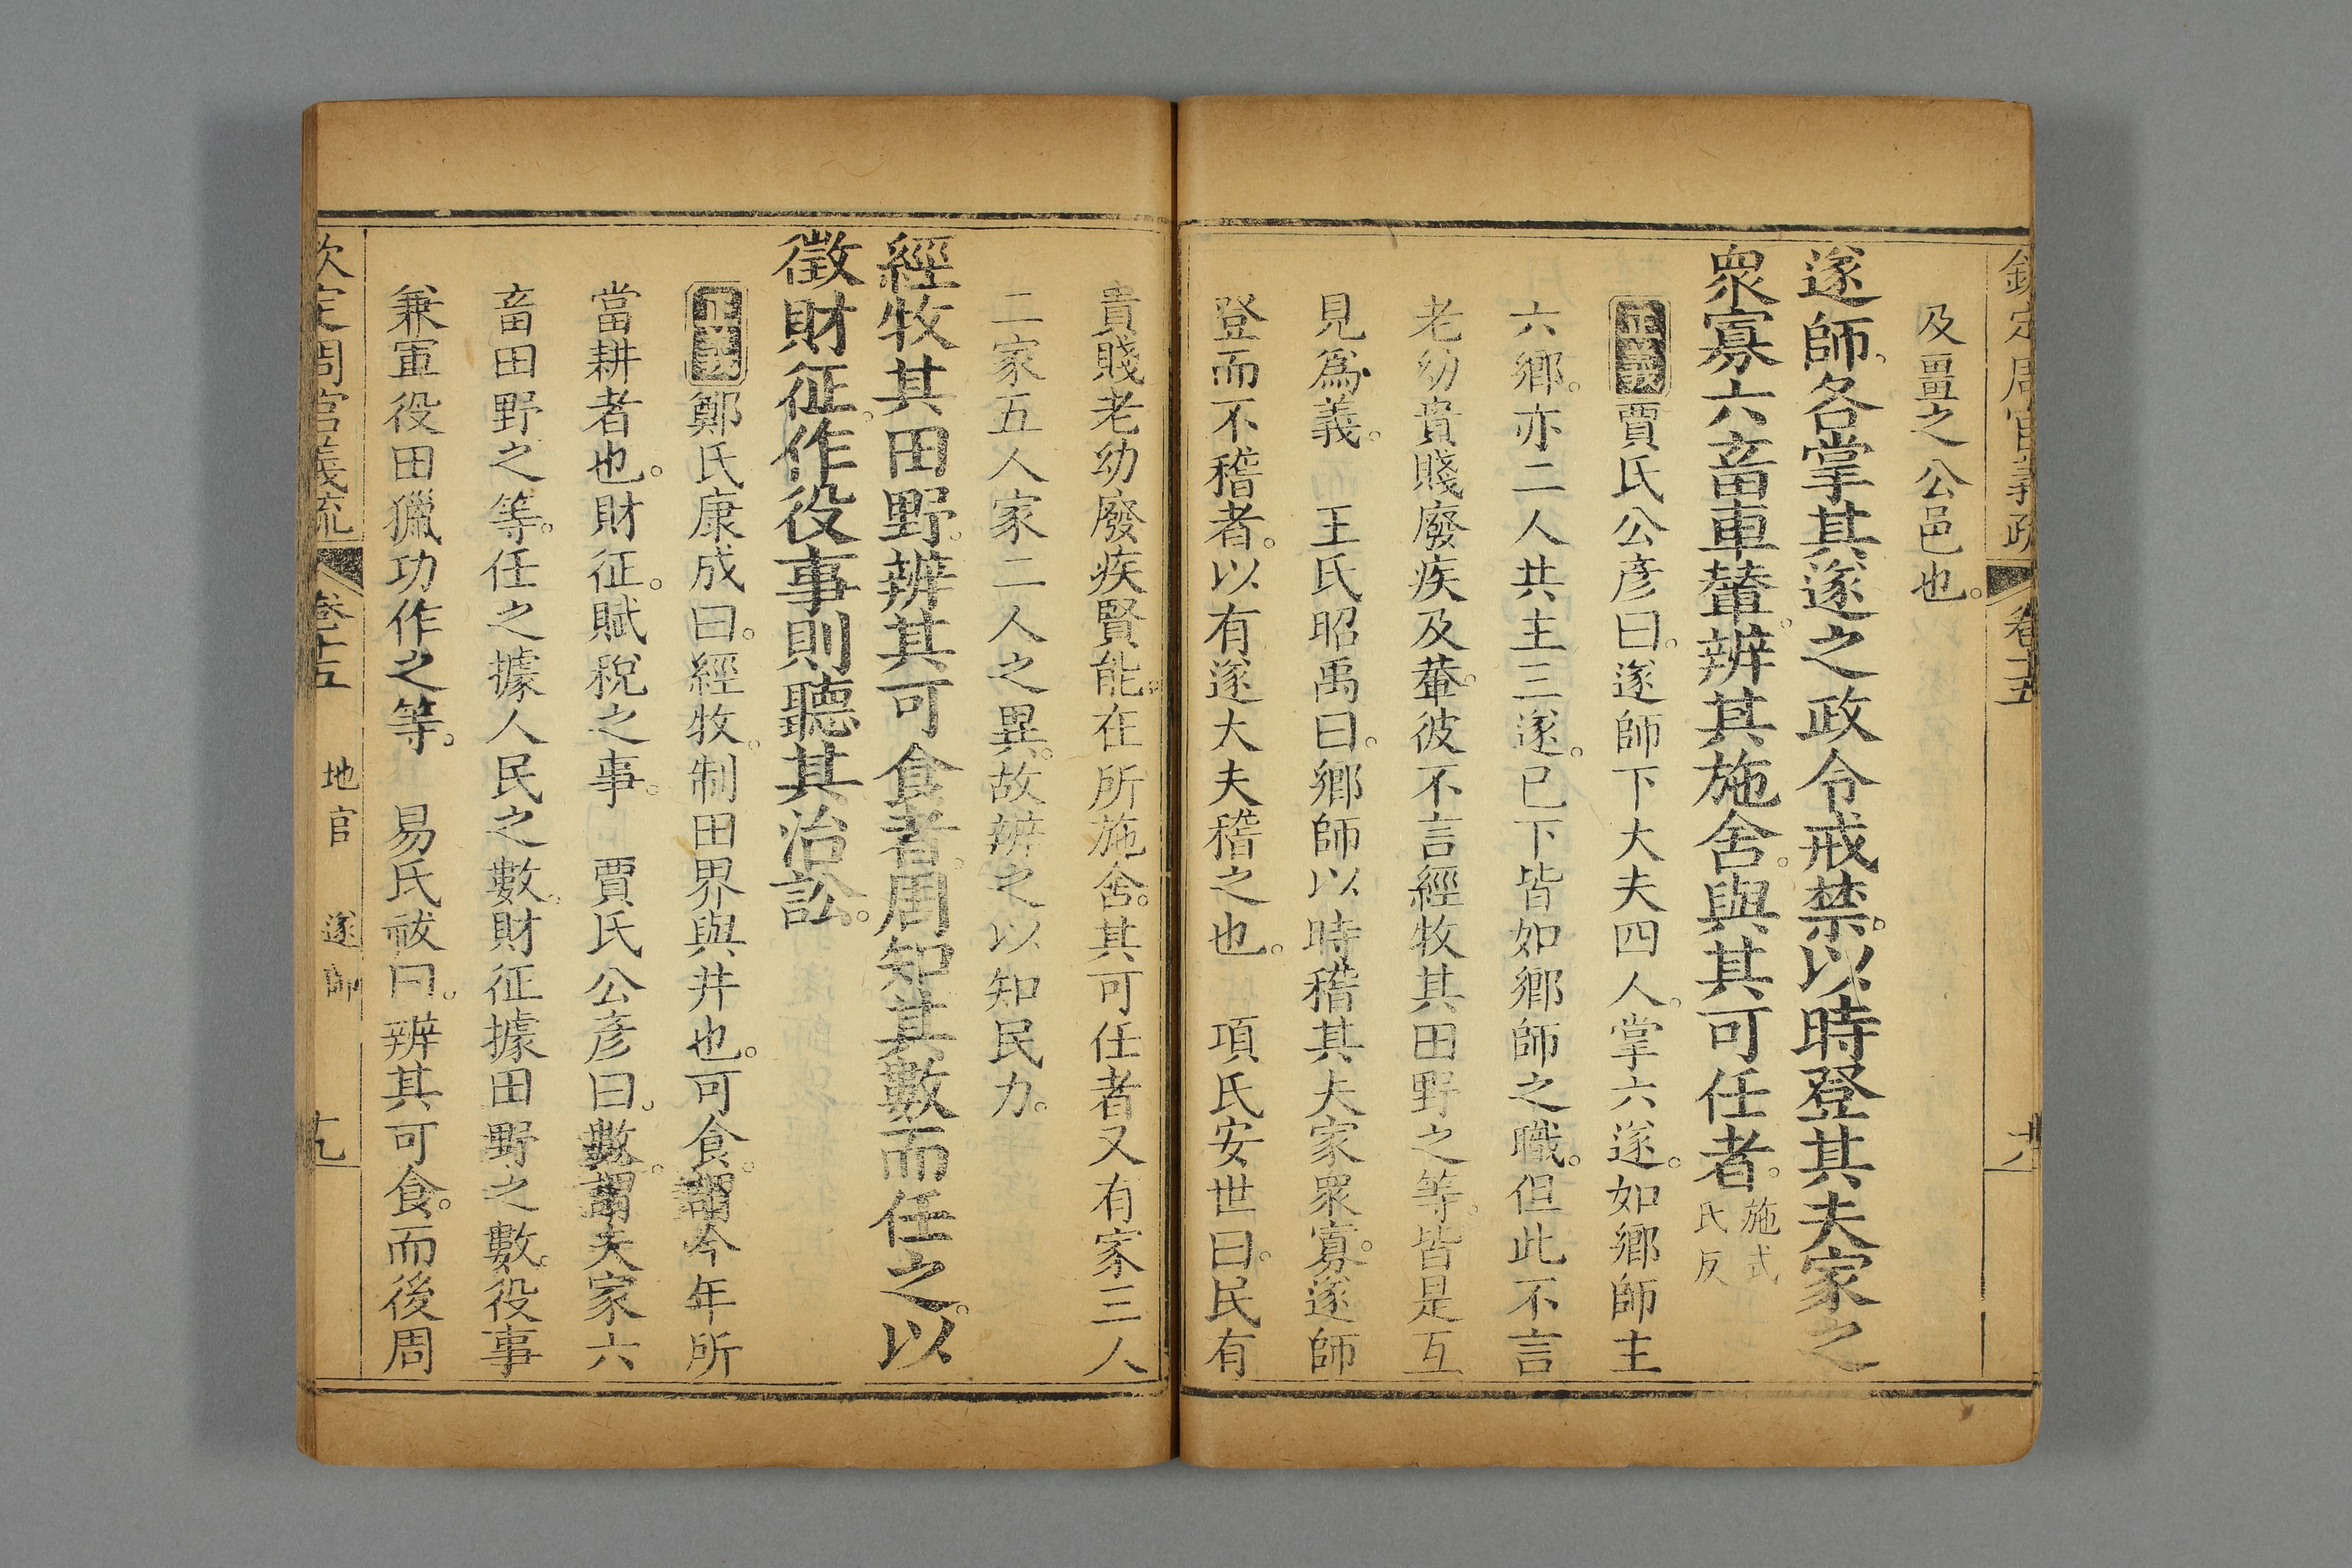 欽定周官義疏 卷十五
及畺之公邑也。
遂師。各掌其遂之政令戒禁。以時登其夫家之
衆寡六畜車輦。辨其施舍。與其可任者。施式氏反
正義賈氏公彥曰。遂師下大夫四人。掌六遂。如鄉師主
六鄉。亦二人共主三遂。已下皆如鄉師之職。但此不言
老幼貴賤廢疾及輂。彼不言經牧其田野之等。皆是互
見爲義。 王氏昭禹曰。鄉師以時稽其夫家衆寡。遂師
登而不稽者。以有遂大夫稽之也。 項氏安世曰。民有
貴賤老幼廢疾賢能。在所施舍。其可任者又有家三人
二家五人家二人之異。故辨之以知民力。
經牧其田野。辨其可食者。周知其數而任之。以
徵財征。作役事則聽其治訟。
正義鄭氏康成曰。經牧。制田界與井也。可食。謂今年所
當耕者也。財征。賦稅之事。 賈氏公彥曰。數。謂夫家六
畜田野之等。任之據人民之數。財征據田野之數。役事
兼軍役田獵功作之等。 易氏祓曰。辨其可食。而後周
欽定周官義疏 卷十五 地官 遂師 十九